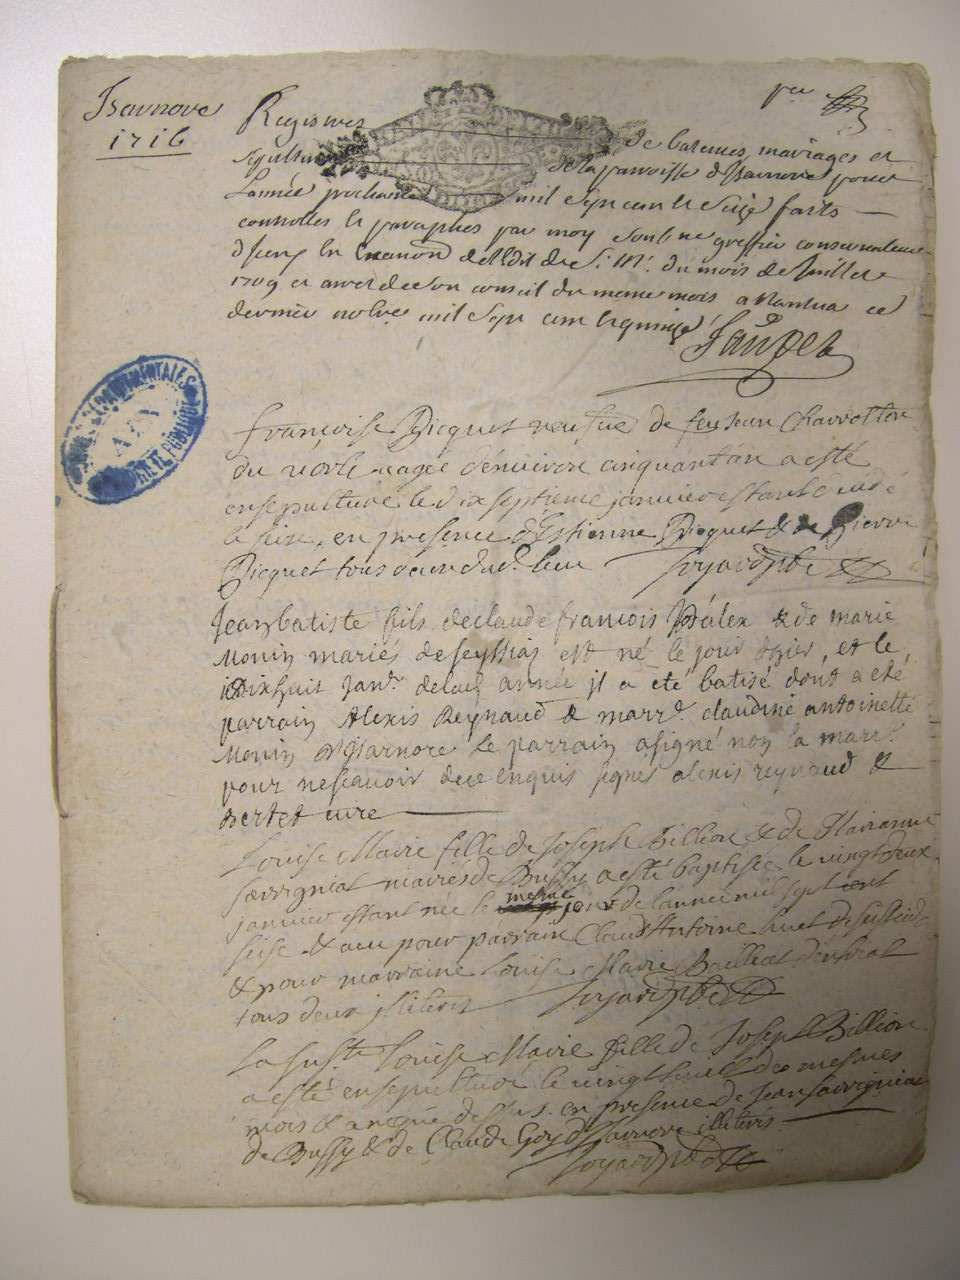 Isarnore
1716
Registres de batemes mariages et
sepultures de la parroisse d'Isarnore pour
l'année prochaine mil sept cent seize faits
controlles et paraphes par moy greffier
en de l'Edit de S. M. du mois de Juillet
1709 et arret de son conseil du meme mois a Nantua ce
dernier mil sept cent quinze
françoise Picquet veufue de feu Jean Charrotton
du agee d'enuiron cinquant'an a esté
ensepulturee le dix septieme januier estant decedé
le seize, en presence d'Estienne Picquet & de Pierre
Picquet tous deux dud. lieu
Jean batiste fils de claude francois & de marie
Monin mariés de est né le jour d'hier, et le
dixhuit Janr. de lad année il a été batisé dont a été
parrain Alexis Reynaud & marr. claudine antoinette
Monin d'Isarnore le parrain a signé non la marr.
pour ne scauoir de ce enquis signes alexis reynaud &
Louise Marie fille de Joseph Billion & de Marianne
Savrigniat mariés de Bussy a esté baptisée le vingt deux
januier estant née le mesme jour de l'année mil sept cent
seise & a eu pour parrain Claud'Antoine huet
& pour marraine Louise Marie
tous deux illiteris
La suste Louise Marie fille de Joseph Billion
a esté ensepulturé le vingt des mesmes
mois & an que dessus en presence de Jean Savrigniat
de Bussy & de Claude Goy d'Isarnore illiteris